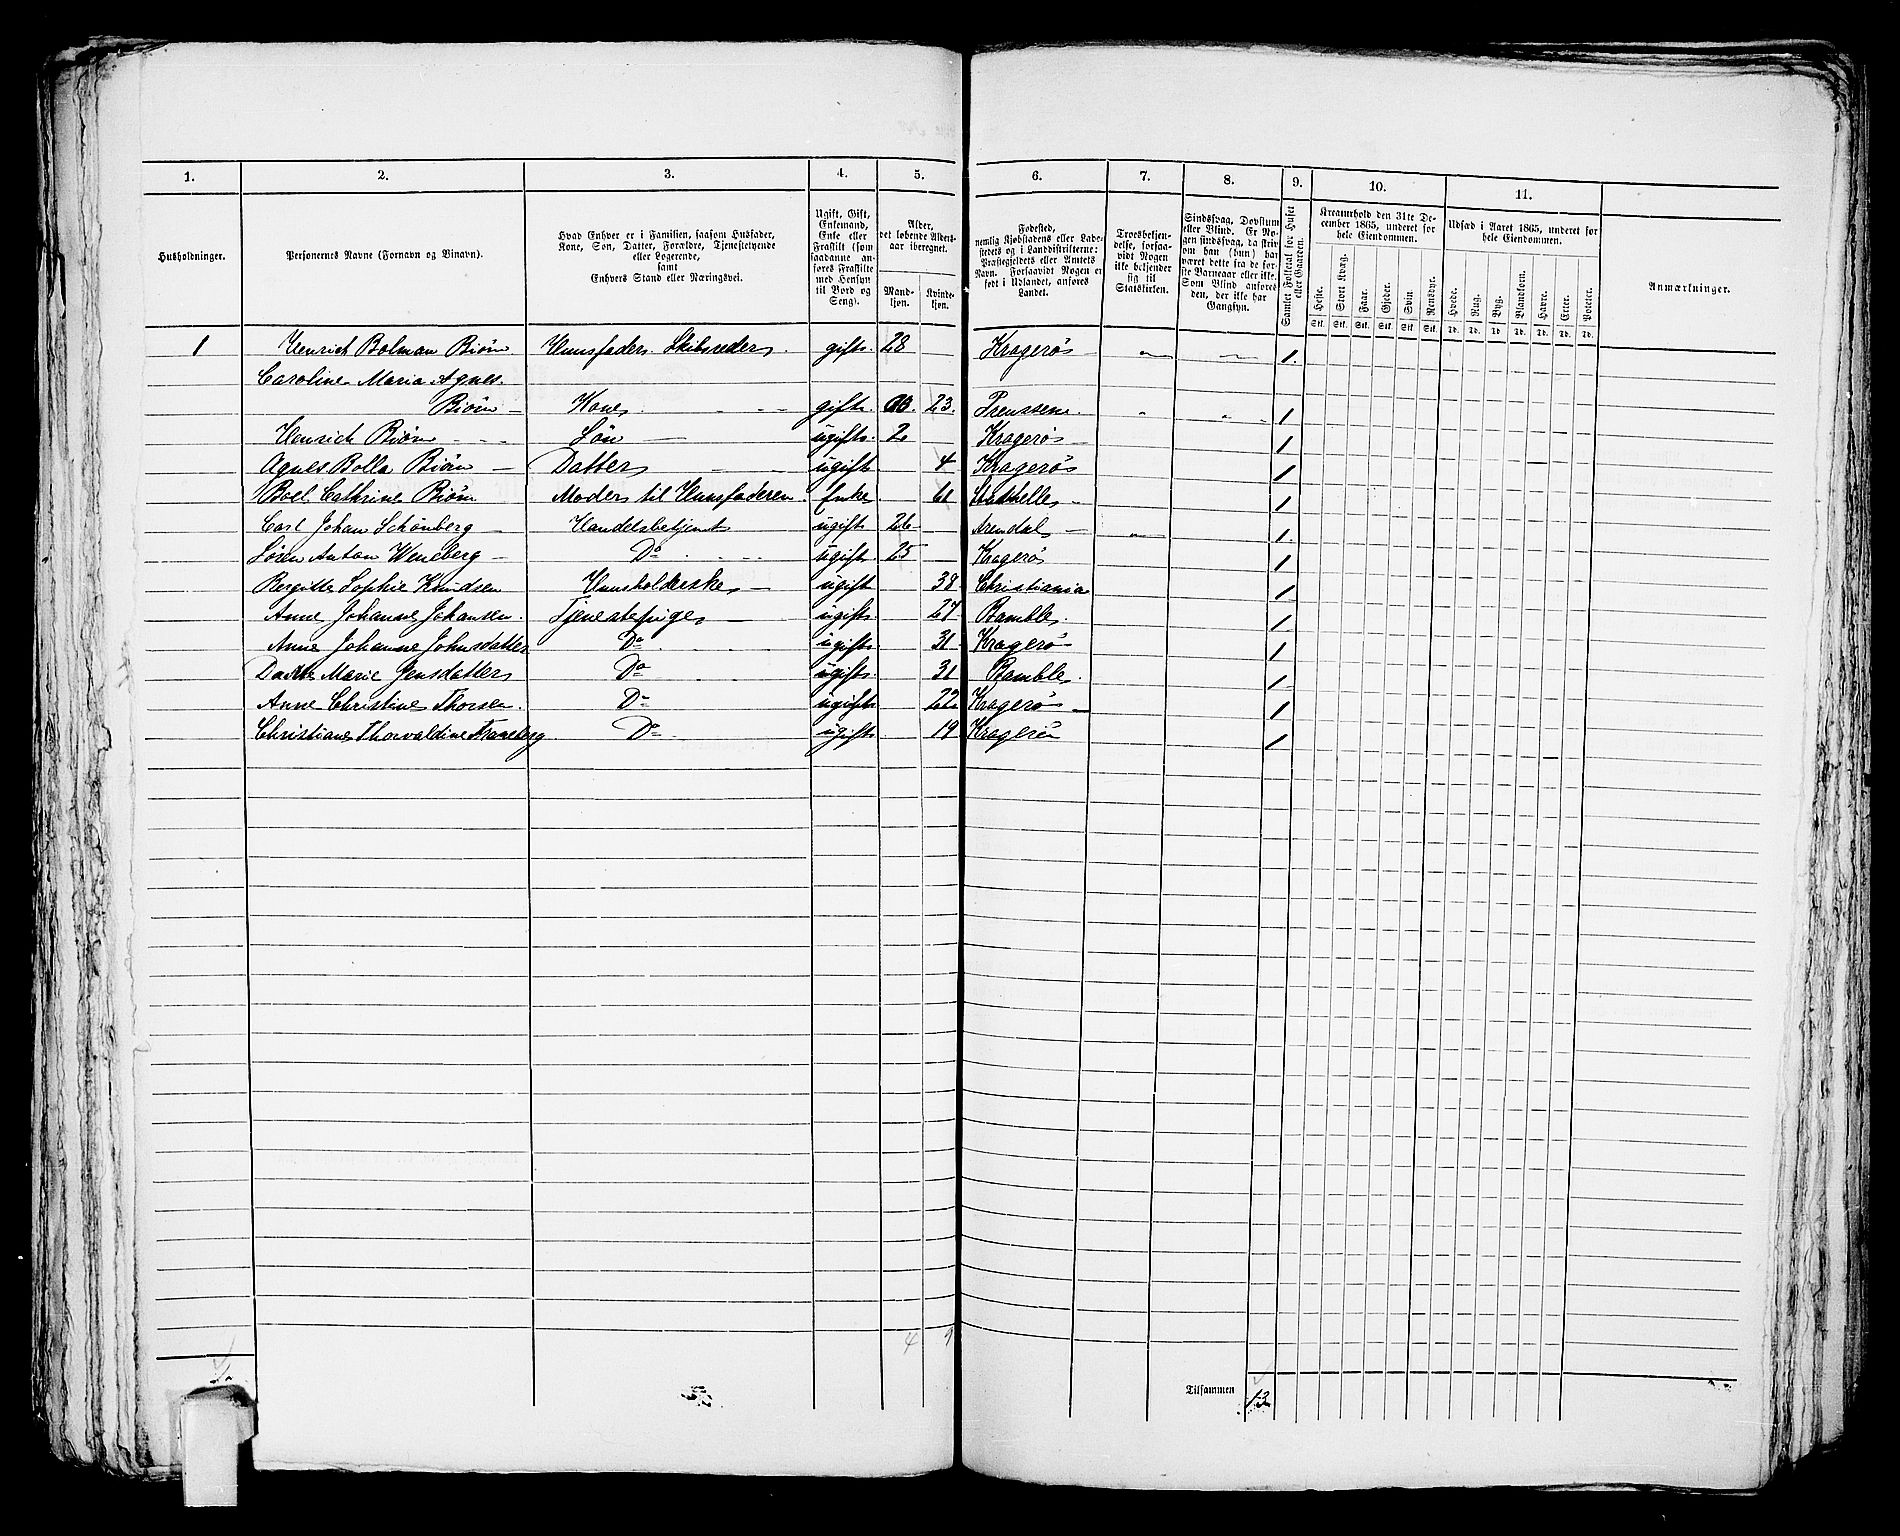 1. 2. 3. 4. 5. 6. 7. 8. 9. 10. 11.
Husholdninger.
Personernes Navne (Fornavn og Binavn).
Hvad Enhver er i Familien, saasom Husfader,
Kone, Søn, Datter, Forældre, Tjenestetyende
eller Logerende,
samt
Enhvers Stand eller Næringsvei.
Ugift, Gift,
Enkemand,
Enke eller
Fraskilt (som
saadanne an-
føres Fraskilte
med Hensyn
til Bord og
Seng).
Alder,
det løbende Alders-
aar iberegnet.
Mand-
kjøn.
Kvinde-
kjøn.
Fødested,
nemlig Kjøbstadens eller Lade-
stedets og i Landdistrikterne:
Præstegjeldets eller Amtets
Navn. Forsaavidt Nogen er
født i Udlandet, anføres
Landet.
Troesbekjen-
delse, forsaa-
vidt Nogen
ikke bekjender
sig til
Statskirken.
Sindssvag, Døvstum
eller Blind. Er No-
gen sindssvag, da skriv
om han (hun) har
været dette fra de før-
ste Barneaar eller ikke.
Som Blind anføres
den, der ikke har
Gangsyn.
Samlet Folketal for Huset
eller Gaarden.
Kreaturhold den 31te De-
cember 1865, underet for
hele Eiendommen.
Heste. Stort Kvæg. Faar. Gjeder. Svin. Rensdyr.
Stk. Stk. Stk. Stk. Stk. Stk.
Udsæd i Aaret 1865, underet for
hele Eiendommen.
Hvede. Rug. Byg. Blandkorn. Havre. Erter. Poteter.
Td. Td. Td. Td. Td. Td. Td.
Anmærkninger.
1 Henrich Bolman Biørn Huusfader. Skibsreder. gift. 28 Kragerø 1.
Caroline Maria Agnes.
Biørn Kone gift. 23. Preussen. 1
Henrich Biørn Søn ugift. 2 Kragerø 1
Agnes Bolla Biørn Datter ugift 4 Kragerø 1
Boel Cathrine Biørn Moder til Huusfaderen. Enke 61 Stathelle 1
Carl Johan Schönberg Handelsbetjent ugift 26 Arendal 1.
Søren Anton Weneberg Do ugift. 25 Kragerø 1
Bergitte Sophie Knudsen Huusholderske ugift 38 Christiania 1
Anne Johanne Johansen. Tjenestepige ugift. 27 Bamble. 1
Anne Johanne Johnsdatter Do ugift. 31 Kragerø 1
Marie Jensdatter Do ugift. 31 Bamble. 1
Anne Christine Thorsen. Do ugift. 22 Kragerø 1
Christiane Thorvaldine Do ugift. 19 Kragerø 1
4 9
Tilsammen 13